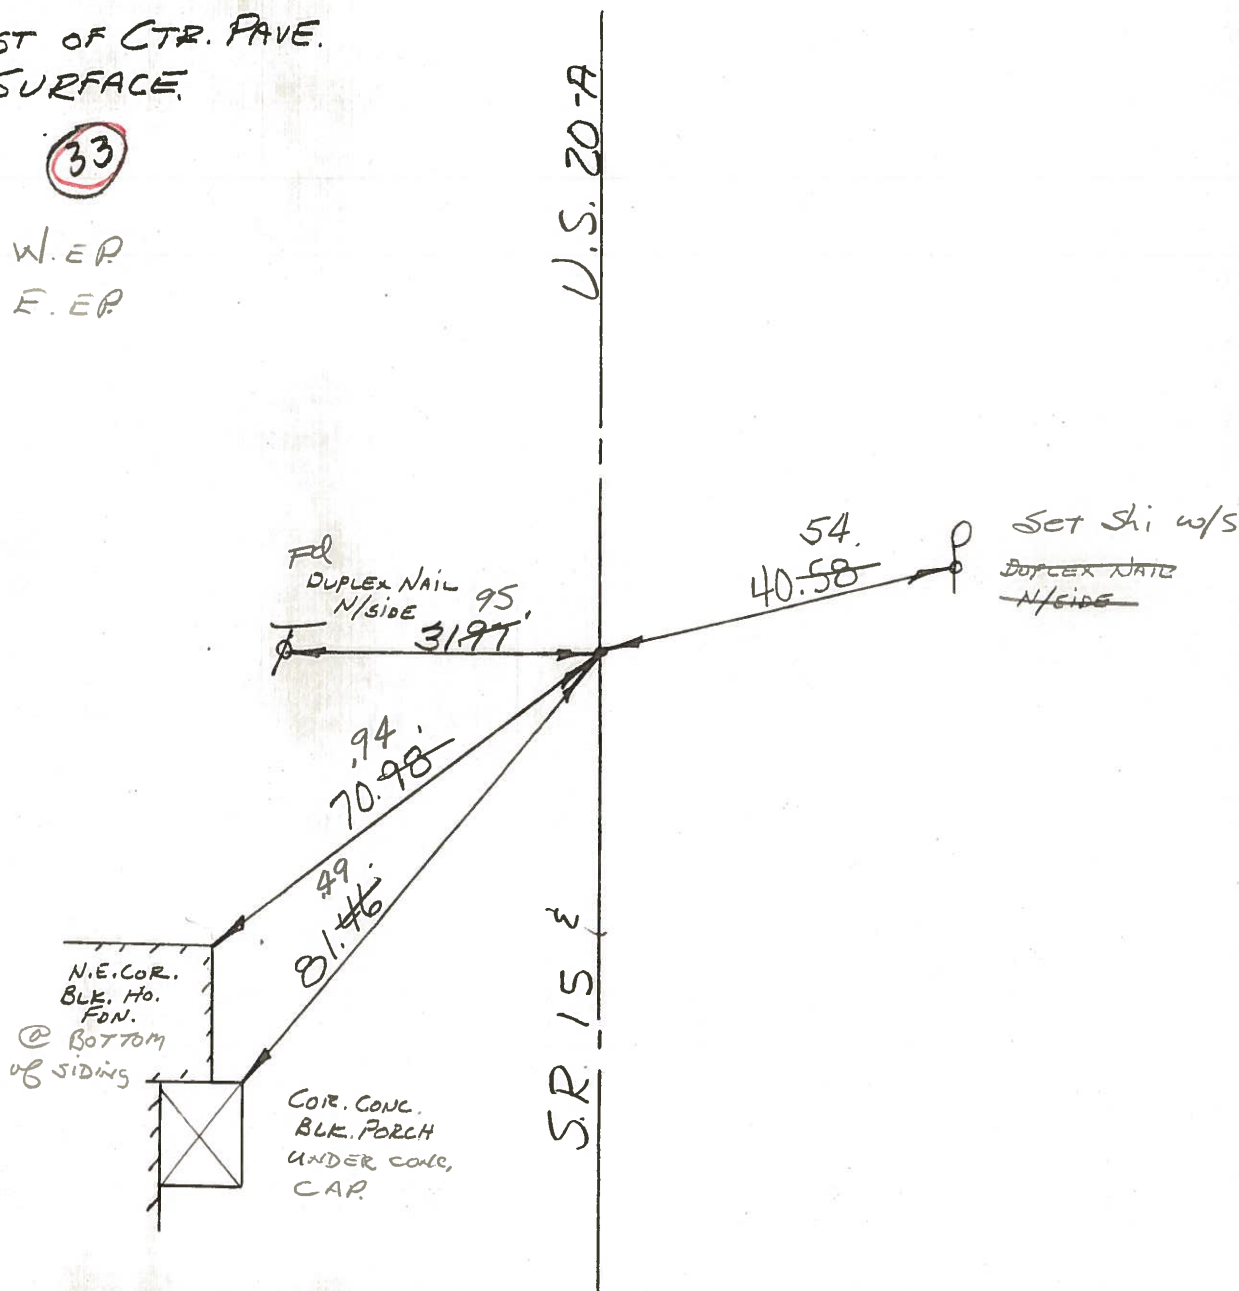 ST OF CTR. PAVE.
SURFACE.
33
W. EP.
E. EP.
U.S. 20-A
Fd
DUPLEX NAIL
N/SIDE
95.
31.97
54.
40.58
Set Shi w/s
DUPLEX NAIL
N/SIDE
.94'
70.98
.49'
81.46
N.E. COR.
BLK. HO.
FDN.
@ BOTTOM
of SIDING
COR. CONC.
BLK. PORCH
UNDER CONC.
CAP.
S.R. 15